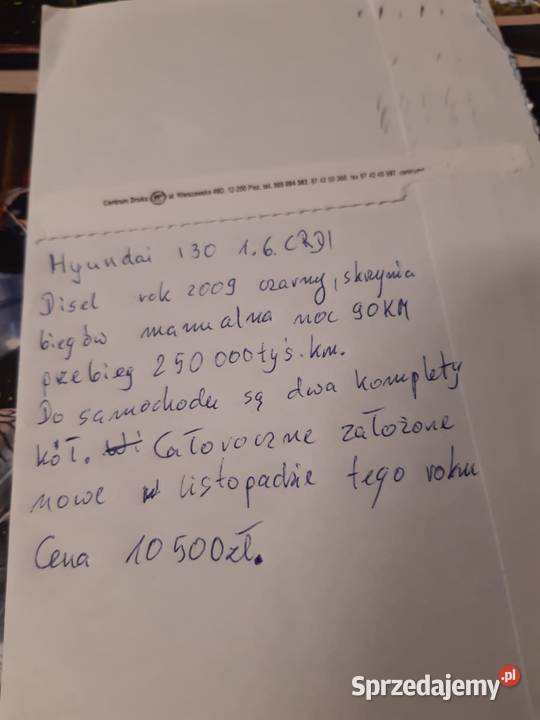 Centrum Druku ul. Warszawska 49D, 12-200 Pisz, tel.
Hyundai i30 1.6. CRDI
Disel rok 2009 czarny, skrzynia
biegów manualna moc 90KM
przebieg 250 000tyś. km.
Do samochodu są dwa komplety
kół. Całoroczne założone
nowe w listopadzie tego roku
Cena 10 500zł.
Sprzedajemy.pl